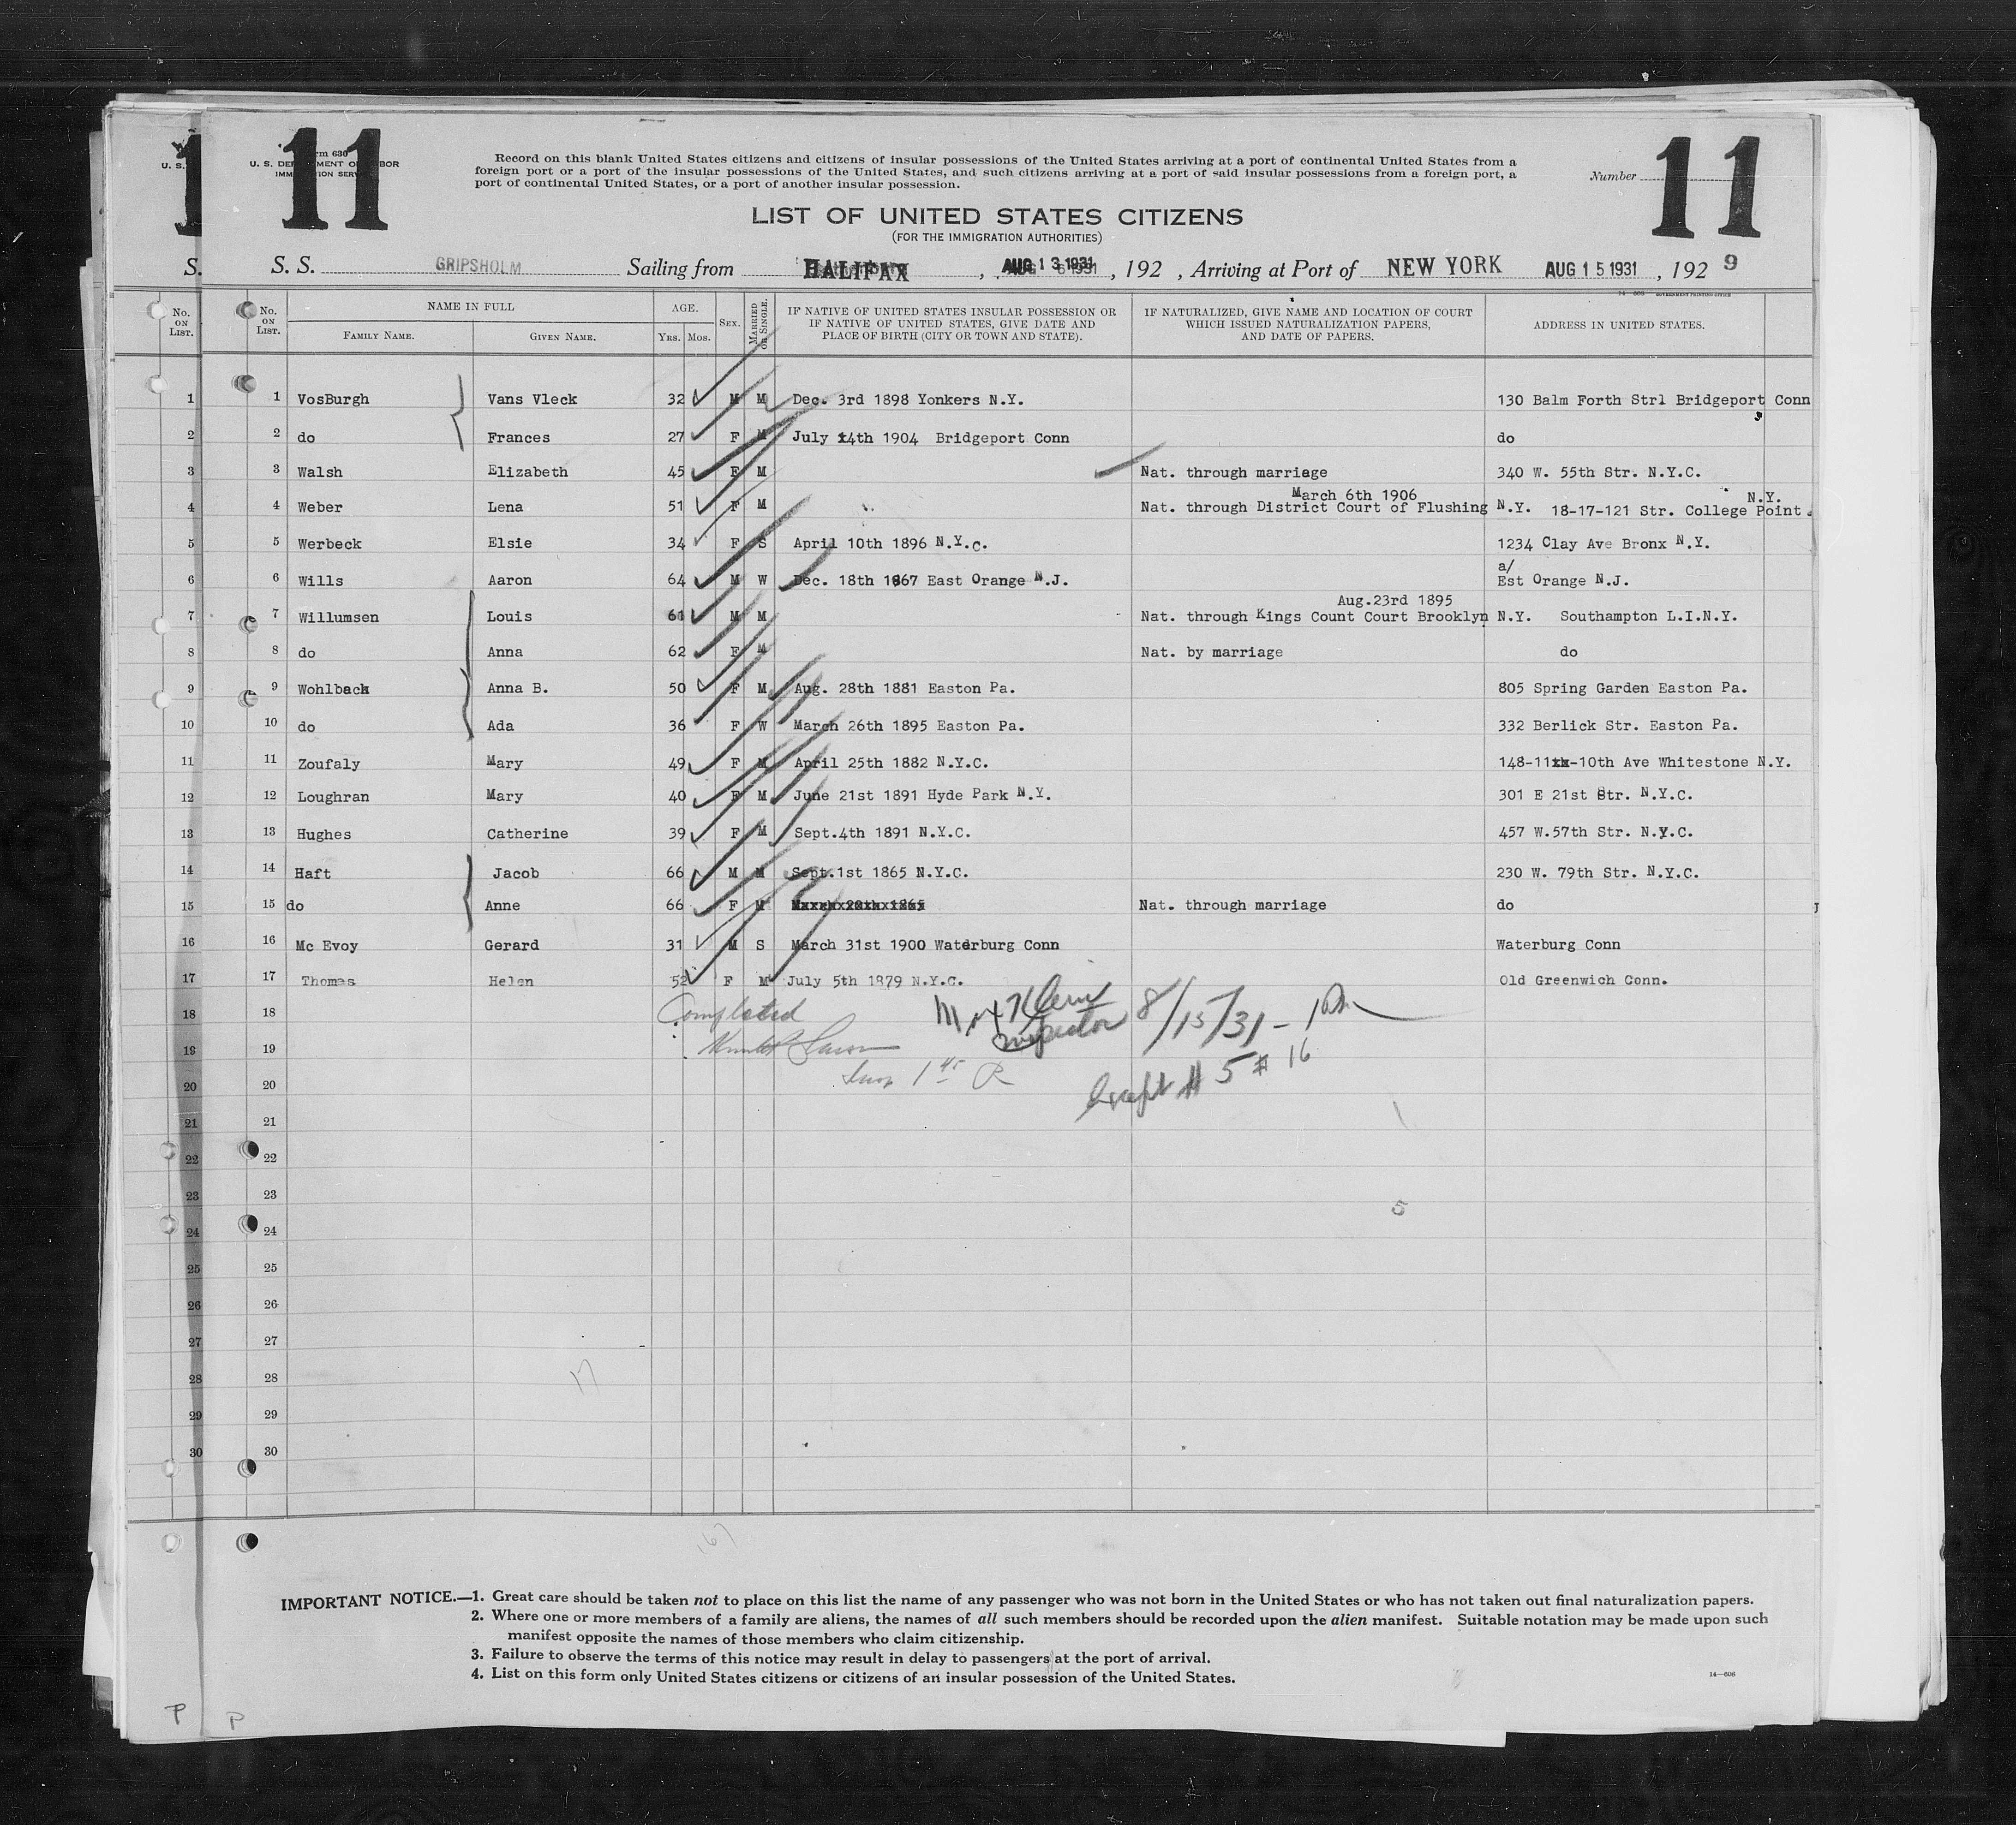 11
11
Form 630
U. S. DEPARTMENT OF LABOR
IMMIGRATION SERVICE
Record on this blank United States citizens and citizens of insular possessions of the United States arriving at a port of continental United States from a
foreign port or a port of the insular possessions of the United States, and such citizens arriving at a port of said insular possessions from a foreign port, a
port of continental United States, or a port of another insular possession.
Number
LIST OF UNITED STATES CITIZENS
(FOR THE IMMIGRATION AUTHORITIES)
S. S. GRIPSHOLM Sailing from HALIFAX , AUG 13 1931 , 192 , Arriving at Port of NEW YORK AUG 15 1931 , 192 9
14—606 GOVERNMENT PRINTING OFFICE
No. ON LIST. NAME IN FULL FAMILY NAME. GIVEN NAME. AGE. YRS. MOS. SEX. MARRIED OR SINGLE. IF NATIVE OF UNITED STATES INSULAR POSSESSION OR IF NATIVE OF UNITED STATES, GIVE DATE AND PLACE OF BIRTH (CITY OR TOWN AND STATE). IF NATURALIZED, GIVE NAME AND LOCATION OF COURT WHICH ISSUED NATURALIZATION PAPERS, AND DATE OF PAPERS. ADDRESS IN UNITED STATES.
1 VosBurgh Vans Vleck 32 M M Dec. 3rd 1898 Yonkers N.Y. 130 Balm Forth Strl Bridgeport Conn
2 do Frances 27 F M July 14th 1904 Bridgeport Conn do
3 Walsh Elizabeth 45 F M Nat. through marriage 340 W. 55th Str. N.Y.C.
March 6th 1906 N.Y.
4 Weber Lena 51 F M Nat. through District Court of Flushing N.Y. 18-17-121 Str. College Point.
5 Werbeck Elsie 34 F S April 10th 1896 N.Y.C. 1234 Clay Ave Bronx N.Y.
a/
6 Wills Aaron 64 M W Dec. 18th 1867 East Orange N.J. Est Orange N.J.
Aug.23rd 1895
7 Willumsen Louis 61 M M Nat. through Kings Count Court Brooklyn N.Y. Southampton L.I.N.Y.
8 do Anna 62 F M Nat. by marriage do
9 Wohlback Anna B. 50 F M Aug. 28th 1881 Easton Pa. 805 Spring Garden Easton Pa.
10 do Ada 36 F W March 26th 1895 Easton Pa. 332 Berlick Str. Easton Pa.
11 Zoufaly Mary 49 F M April 25th 1882 N.Y.C. 148-11xx-10th Ave Whitestone N.Y.
12 Loughran Mary 40 F M June 21st 1891 Hyde Park N.Y. 301 E 21st Str. N.Y.C.
13 Hughes Catherine 39 F M Sept.4th 1891 N.Y.C. 457 W.57th Str. N.Y.C.
14 Haft Jacob 66 M M Sept.1st 1865 N.Y.C. 230 W. 79th Str. N.Y.C.
15 do Anne 66 F M Nat. through marriage do
16 Mc Evoy Gerard 31 M S March 31st 1900 Waterburg Conn Waterburg Conn
17 Thomas Helen 52 F M July 5th 1879 N.Y.C. Old Greenwich Conn.
18 Completed 8/15/31
19 Inspector
20 Except # 5 # 16
21
22
23
24
25
26
27
28
29
30
17
IMPORTANT NOTICE.—1. Great care should be taken not to place on this list the name of any passenger who was not born in the United States or who has not taken out final naturalization papers.
2. Where one or more members of a family are aliens, the names of all such members should be recorded upon the alien manifest. Suitable notation may be made upon such
manifest opposite the names of those members who claim citizenship.
3. Failure to observe the terms of this notice may result in delay to passengers at the port of arrival.
4. List on this form only United States citizens or citizens of an insular possession of the United States.
14—606
P P